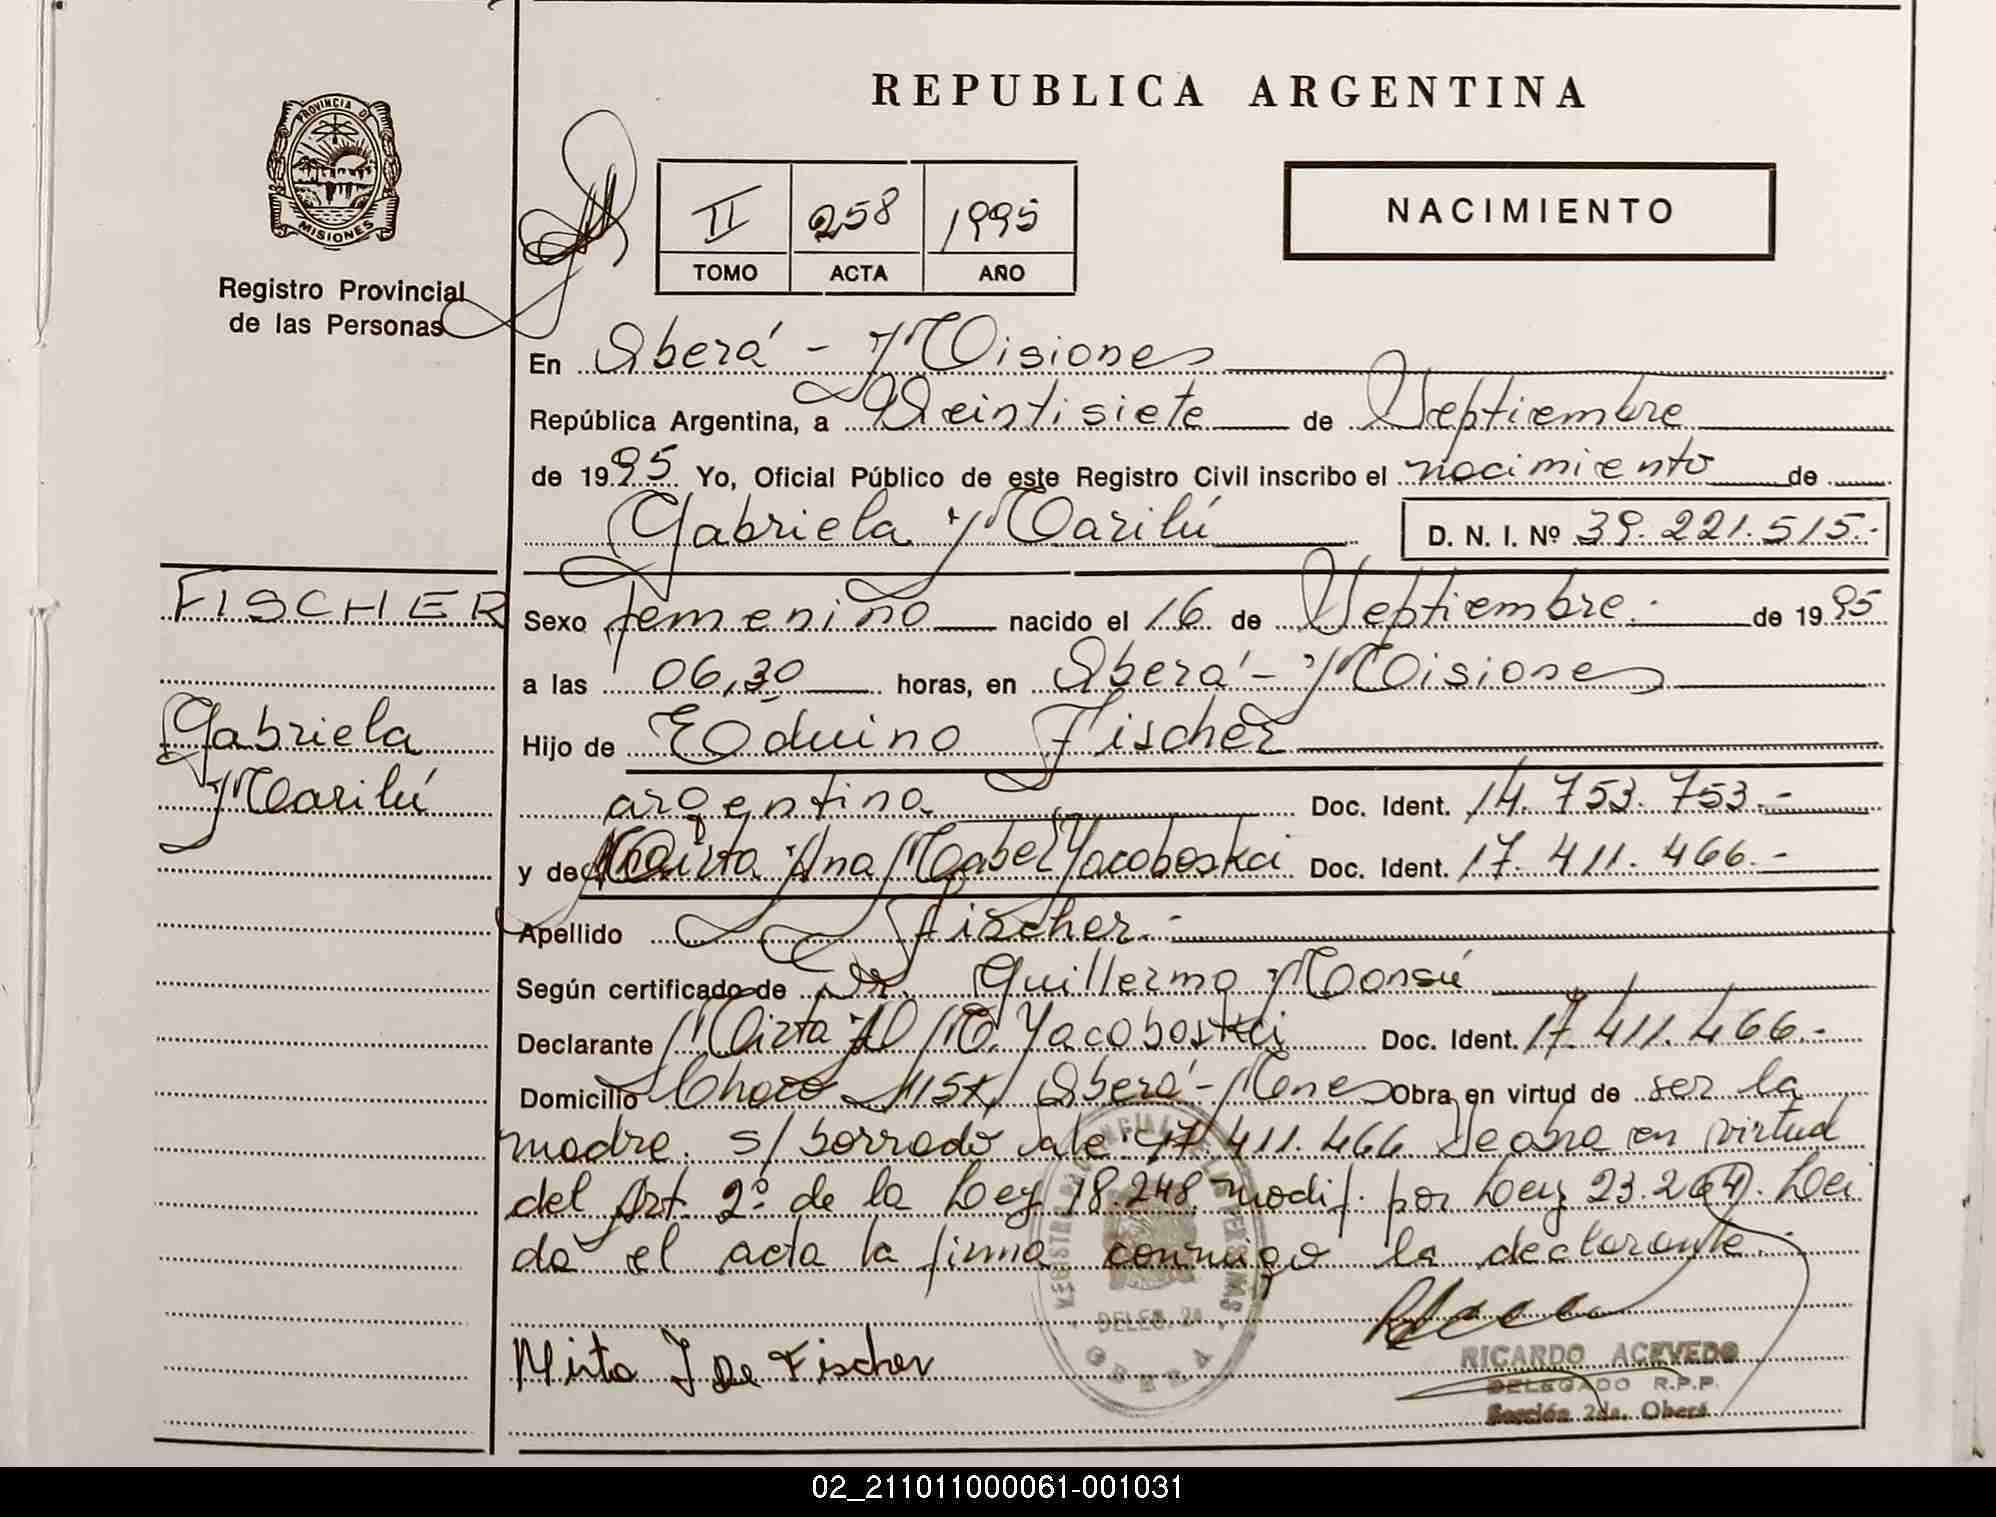 REPUBLICA ARGENTINA
PROVINCIA D
MISIONES
Registro Provincial
de las Personas
II 258 1995
TOMO ACTA AÑO
NACIMIENTO
En Oberá - Misiones
República Argentina, a Veintisiete de Septiembre
de 1995 Yo, Oficial Público de este Registro Civil inscribo el nacimiento de
Gabriela Marilú D. N. I. Nº 39.221.515.-
FISCHER
Gabriela
Marilú
Sexo femenino nacido el 16 de Septiembre.- de 1995
a las 06,30 horas, en Oberá - Misiones
Hijo de Eduino Fischer
argentino Doc. Ident. 14.753.753.-
y de Mirta Ana Mabel Yacoboski Doc. Ident. 17.411.466.-
Apellido Fischer.-
Según certificado de Dr. Guillermo
Declarante Mirta A M. Yacoboski Doc. Ident. 17.411.466.-
Domicilio Oberá - Mnes Obra en virtud de ser la
madre. s/ borrado vale: 17.411.466 Se obra en virtud
del Art. 2º de la Ley 18.248 modif. por Ley 23.264. Lei
da el acta la firma conmigo la declarante.-
Mirta J De Fischer
REGISTRO PROVINCIAL DE LAS PERSONAS
DELEG. 2a
OBERA
RICARDO ACEVEDO
DELEGADO R.P.P.
Sección 2da. Oberá
02_211011000061-001031